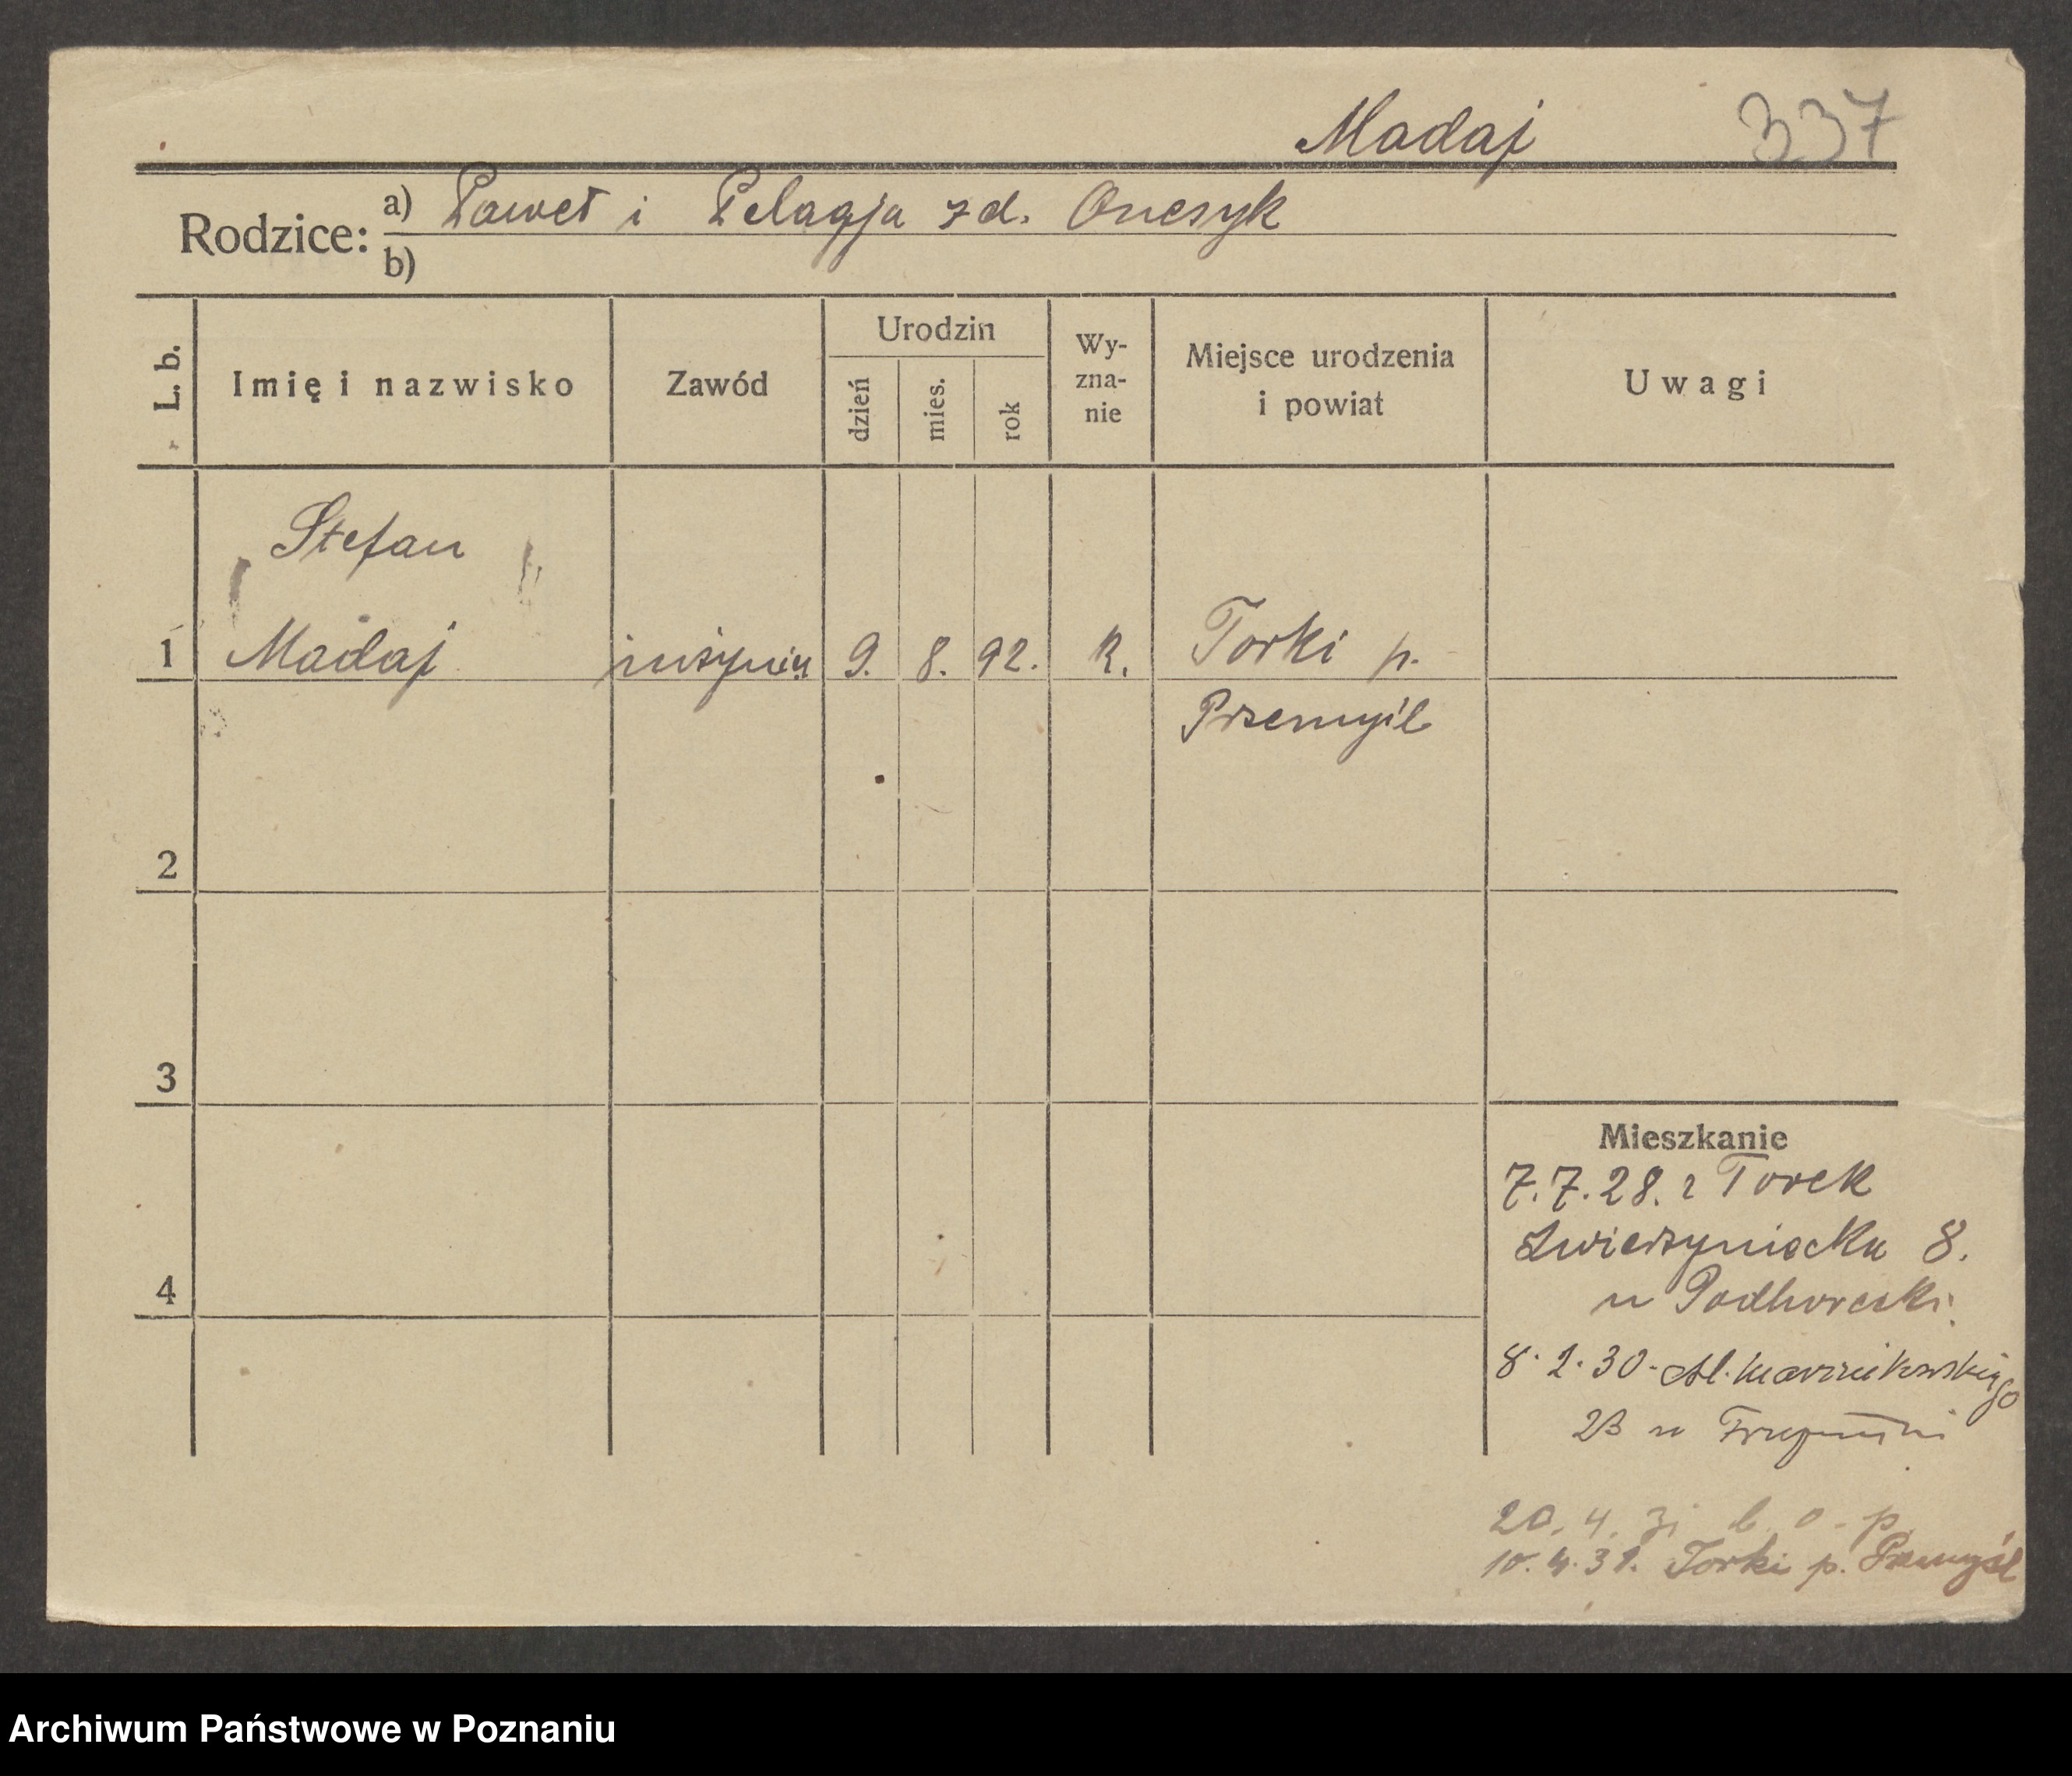 Madaj 337
Rodzice: a) Paweł i Pelagja z d. Onesyk
b)
L. b. Imię i nazwisko Zawód Urodzin dzień mies. rok Wy-zna-nie Miejsce urodzenia i powiat Uwagi
Stefan
1 Madaj 9. 8. 92. Torki p.
Przemyśl
2
3
Mieszkanie
7.7.28. z Torek
Zwierzyniecka 8.
u Podhorecki
4
8.2.30. Al. Marcinkowskiego
23 u
20. 4. 31 b. o. p.
10.4.31. Torki p. Przemyśl
Archiwum Państwowe w Poznaniu